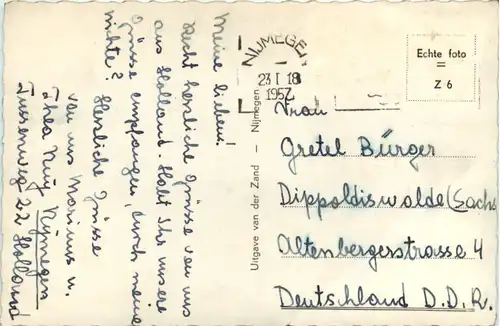 Meine lieben!
Recht herzliche Grüsse von uns
aus Holland. Habt Ihr unsere
Grüsse empfangen, durch meine
nichte?
Herzliche Grüsse
von uns Marinus u.
Thea Nijmegen
22 Holland
Uitgave van der Zand — Nijmegen
NIJMEGEN
23 I 18
1957
Echte foto
=
Z 6
Frau
Gretel Bürger
Dippoldiswalde (Sachs
Altenbergerstrasse 4
Deutschland D.D.R.